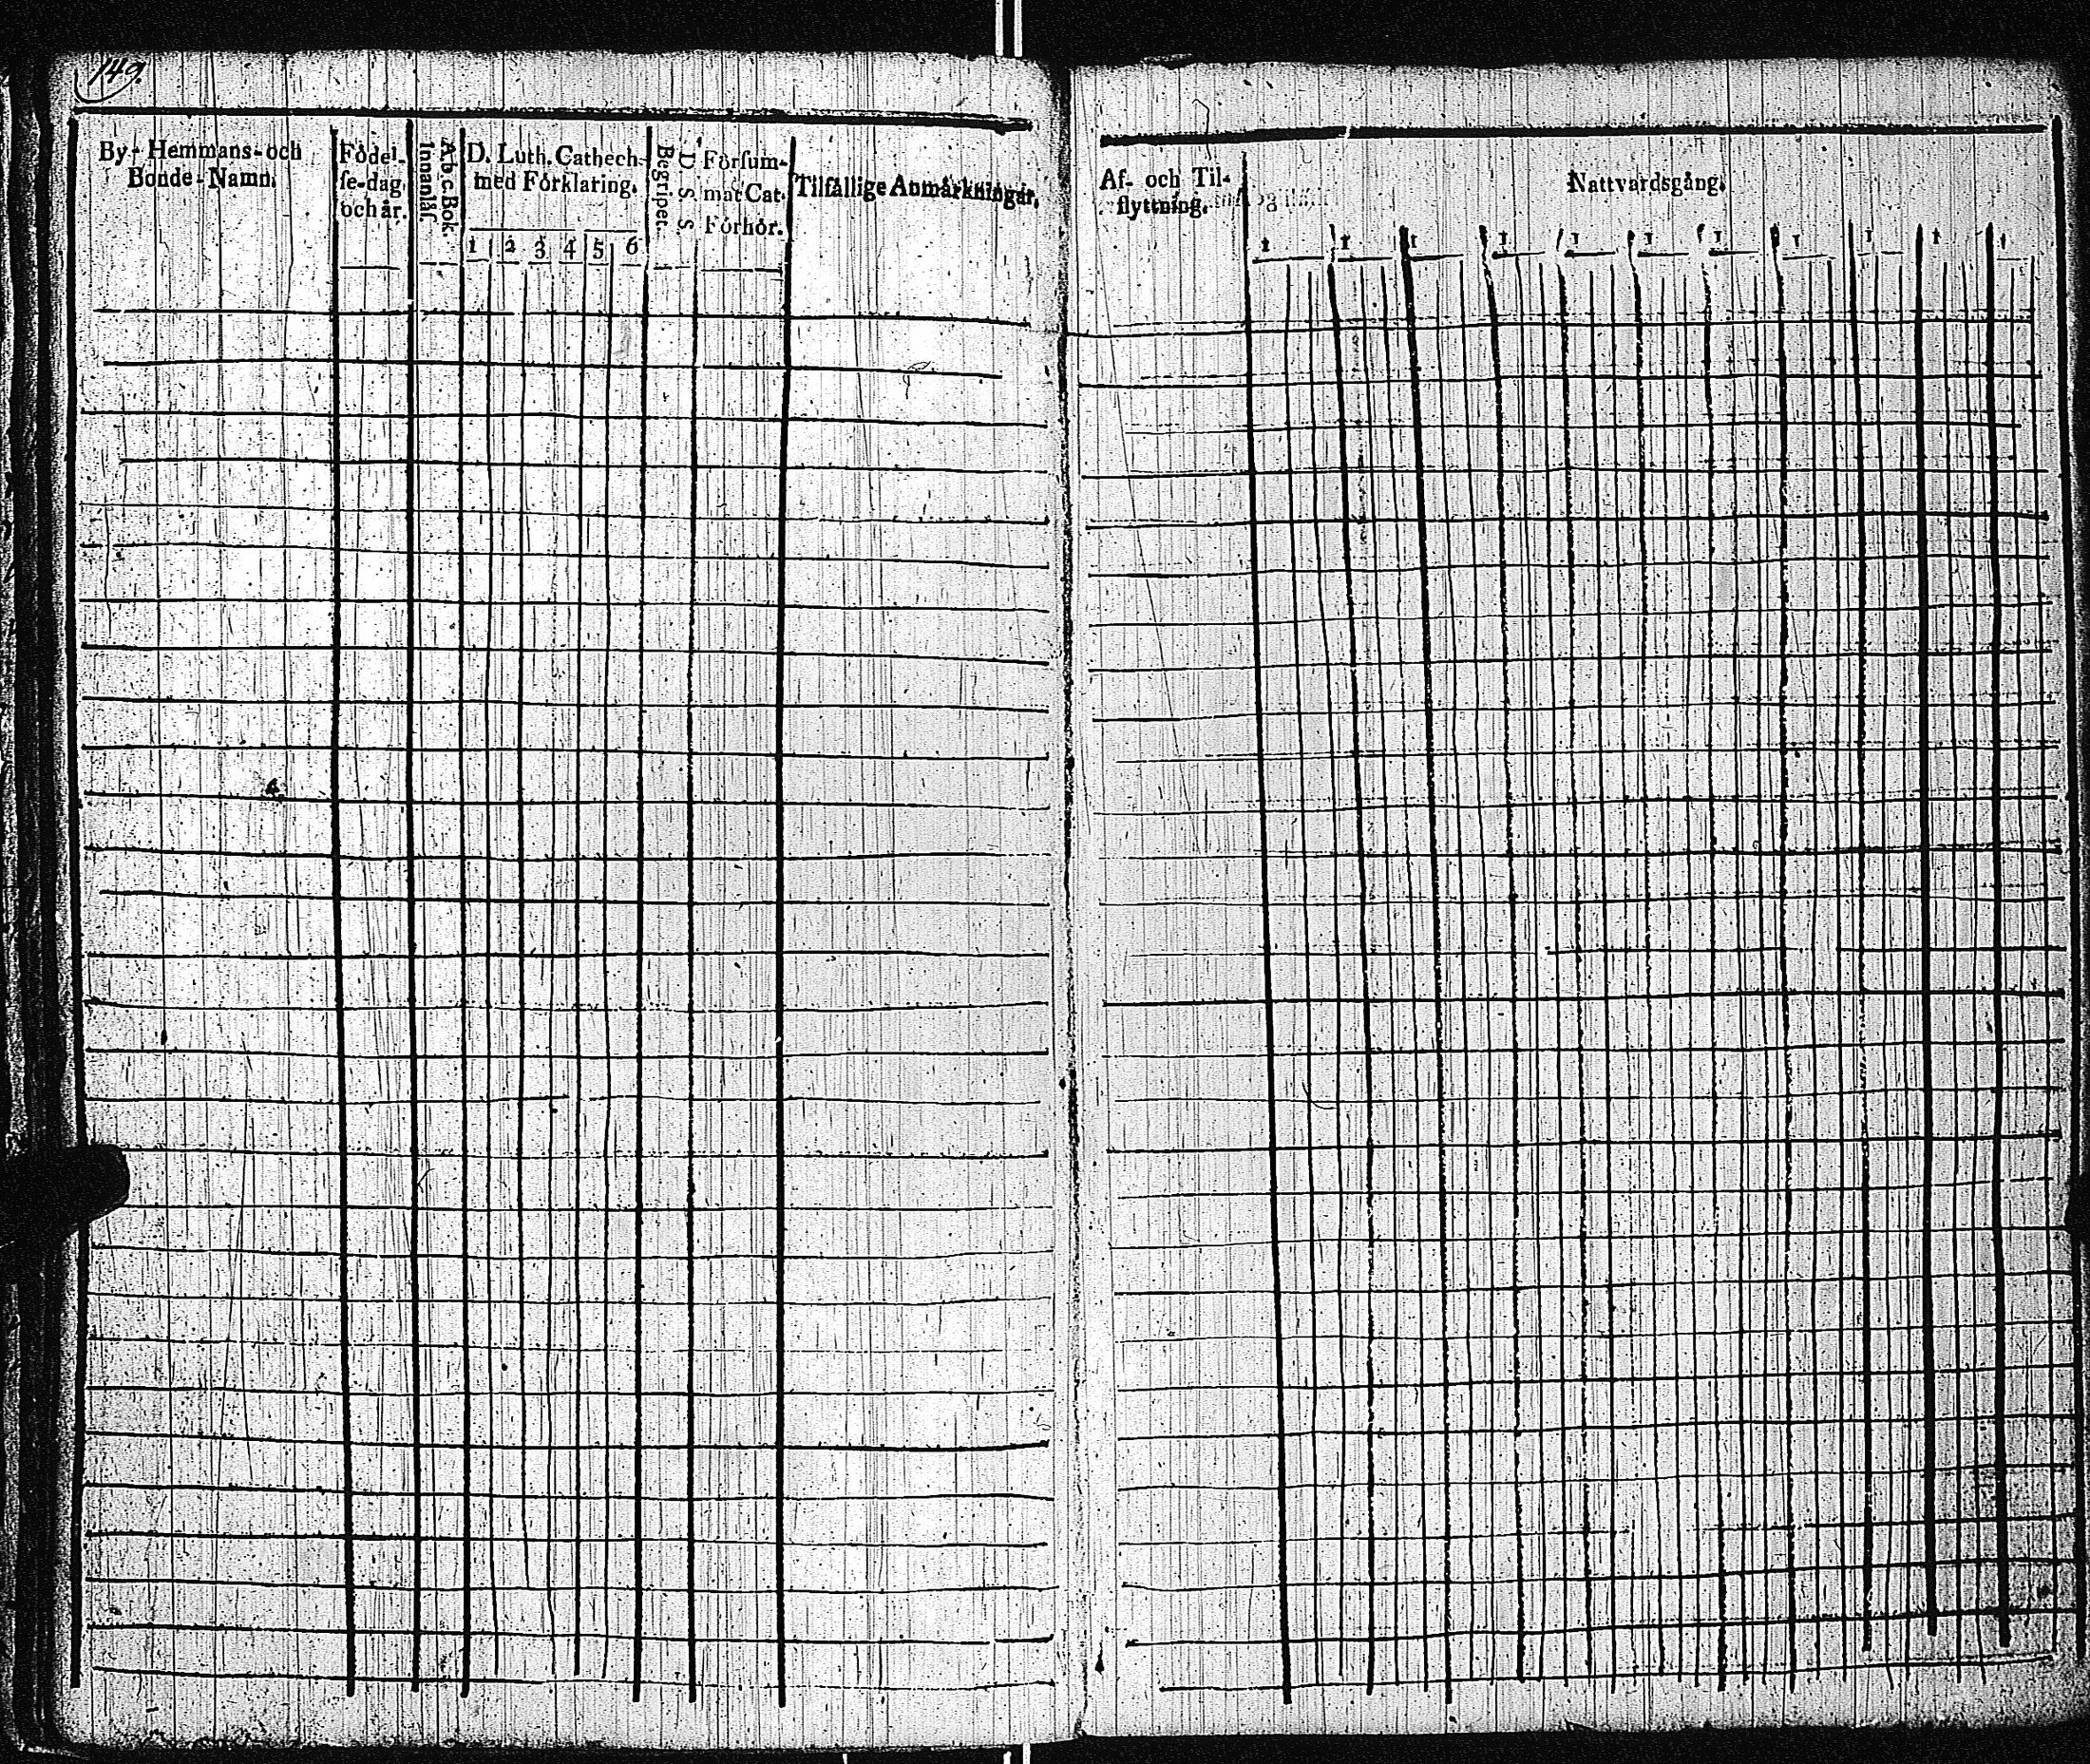 149.
By- Hemmans- och
Bonde-Namn.
Födel-
ſe-dag
och år.
A.b.c. Bok.
Innanläſ.
D. Luth. Cathech-
med Förklaring.
1 2 3 4 5 6
D. S. S.
Begripet.
Förſum-
mat Cat.
Förhör.
Tilfällige Anmärkningar.
Af- och Til-
flyttning.
Nattvardsgång.
1 1 1 1 1 1 1 1 1 1 1